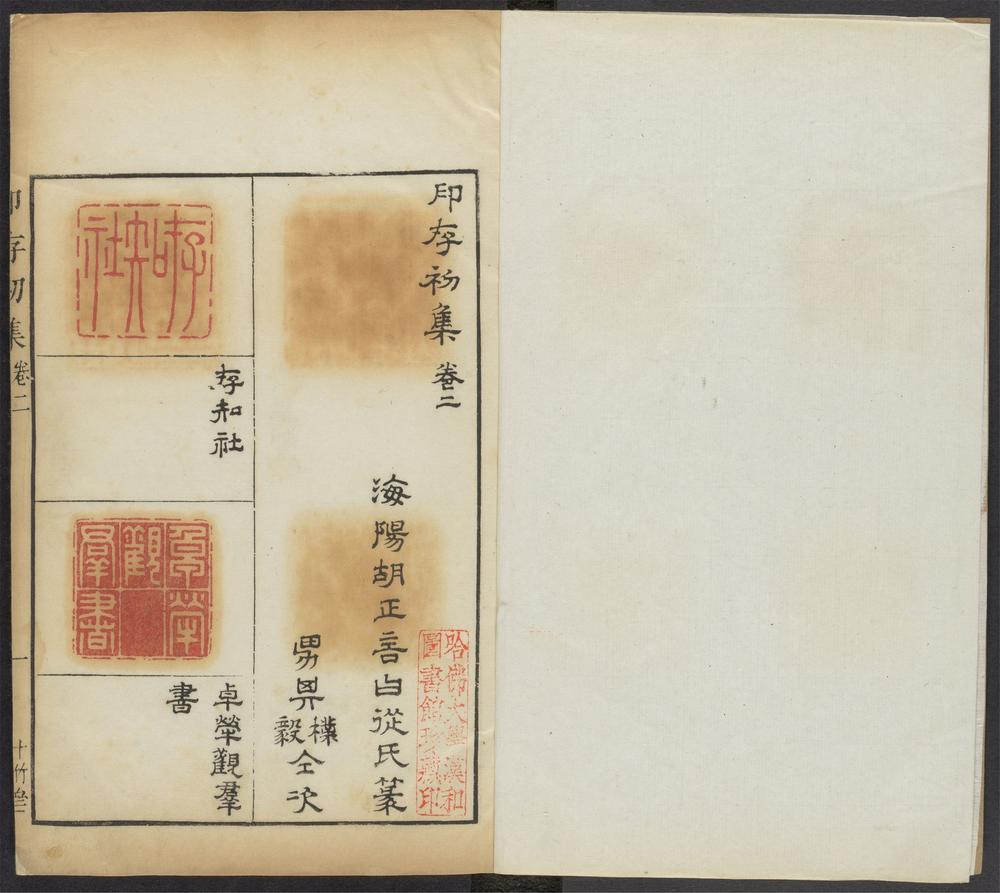 印存初集 卷二
海陽胡正言曰從氏篆
男其樸
毅仝次
哈佛大學漢和
圖書館珍藏印
存知社
存知社
卓犖觀羣書
卓犖觀羣
書
印存初集 卷二
一
十竹齋